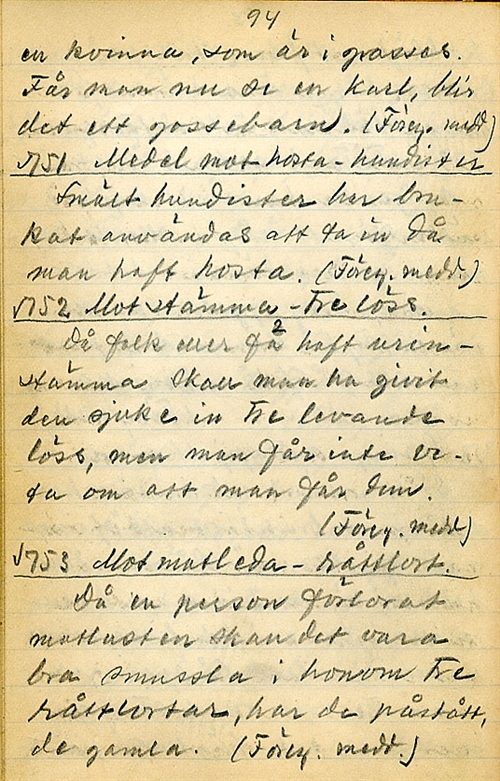 94
en kvinna, som är i grossess.
Får man nu se en karl, blir
det ett gossebarn. (Föreg. medd)
751 Medel mot hosta - hundister
Smält hundister har bru-
kat användas att ta in då
man haft hosta. (Föreg. medd.)
752 Mot stämma - tre löss.
Då folk eller fä haft urin-
stämma skall man ha givit
den sjuke in tre levande
löss, men man får inte ve-
ta om att man får dem.
(Föreg. medd)
753 Mot matleda - råttlort.
Då en person förlorat
matlusten skall det vara
bra smussla i honom tre
råttlortar, har de påstått,
de gamla. (Föreg. medd.)